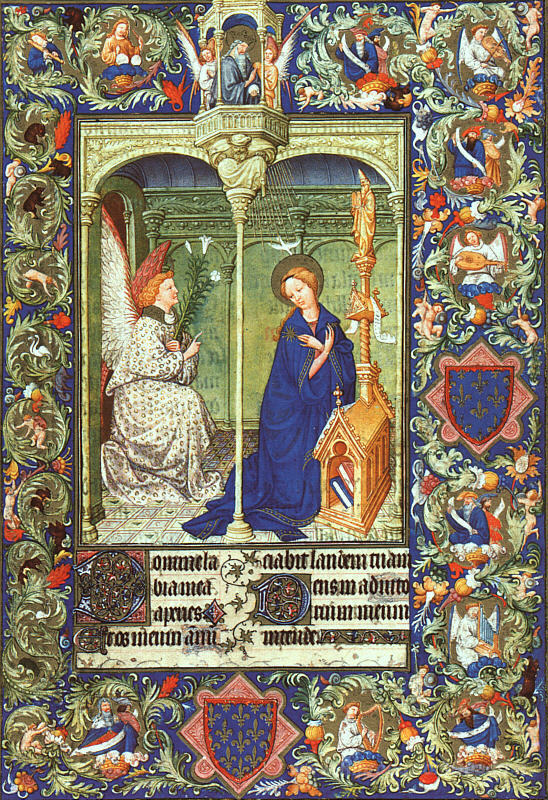 Domine la
bia mea
aperies
Et os meum annū
ciabit laudem tuam
Deus in adiuto
rium meum
intende